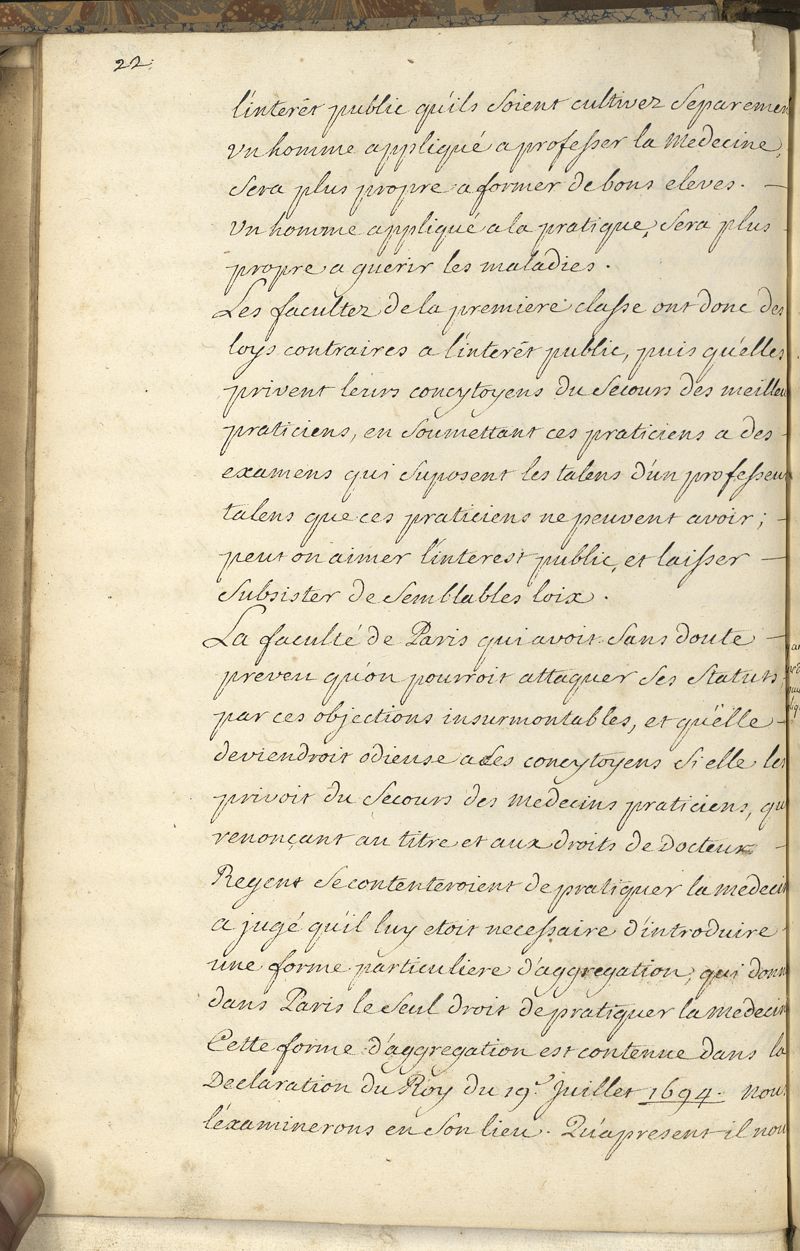 22.
l'interêt public qu'ils soient cultivez Separemen
Un homme appliqué a professer la Medecine,
Sera plus propre a former de bons eleves. —
Un homme appliqué a la pratique, Sera plus -
propre a guerir les maladies.
Les facultez de la premiere classe ont donc des
loys contraires a l'interêt public, puis qu'elles
privent leurs concytoyens du Secours des meilleu
praticiens, en Soumettant ces praticiens a des -
examens qui Suposent les talens d'un professeur
talens que ces praticiens ne peuvent avoir; -
peut on aimer l'interest public, et laisser —
Subsister de Semblables loix.
La faculté de Paris qui avoit Sans doute -
preveu qu'on pourroit attaquer Ses Statuts,
par ces objections insurmontables, et qu'elle -
deviendroit odieuse a Ses concytoyens Si elle les
privoit du Secours des Medecins praticiens, qui
renonçant au titre et aux droits de Docteur -
Regent Se contenteroient de pratiquer la medecin
a jugé qu'il luy etoit necessaire d'introduire -
une forme particuliere d'aggregation, qui donn
dans Paris le Seul droit de pratiquer la Medecin
Cette forme d'aggregation est contenue dans la
Declaration du Roy du 19.e Juillet 1694. nous
l'éxaminerons en Son lieu. Qu'apresent il nou